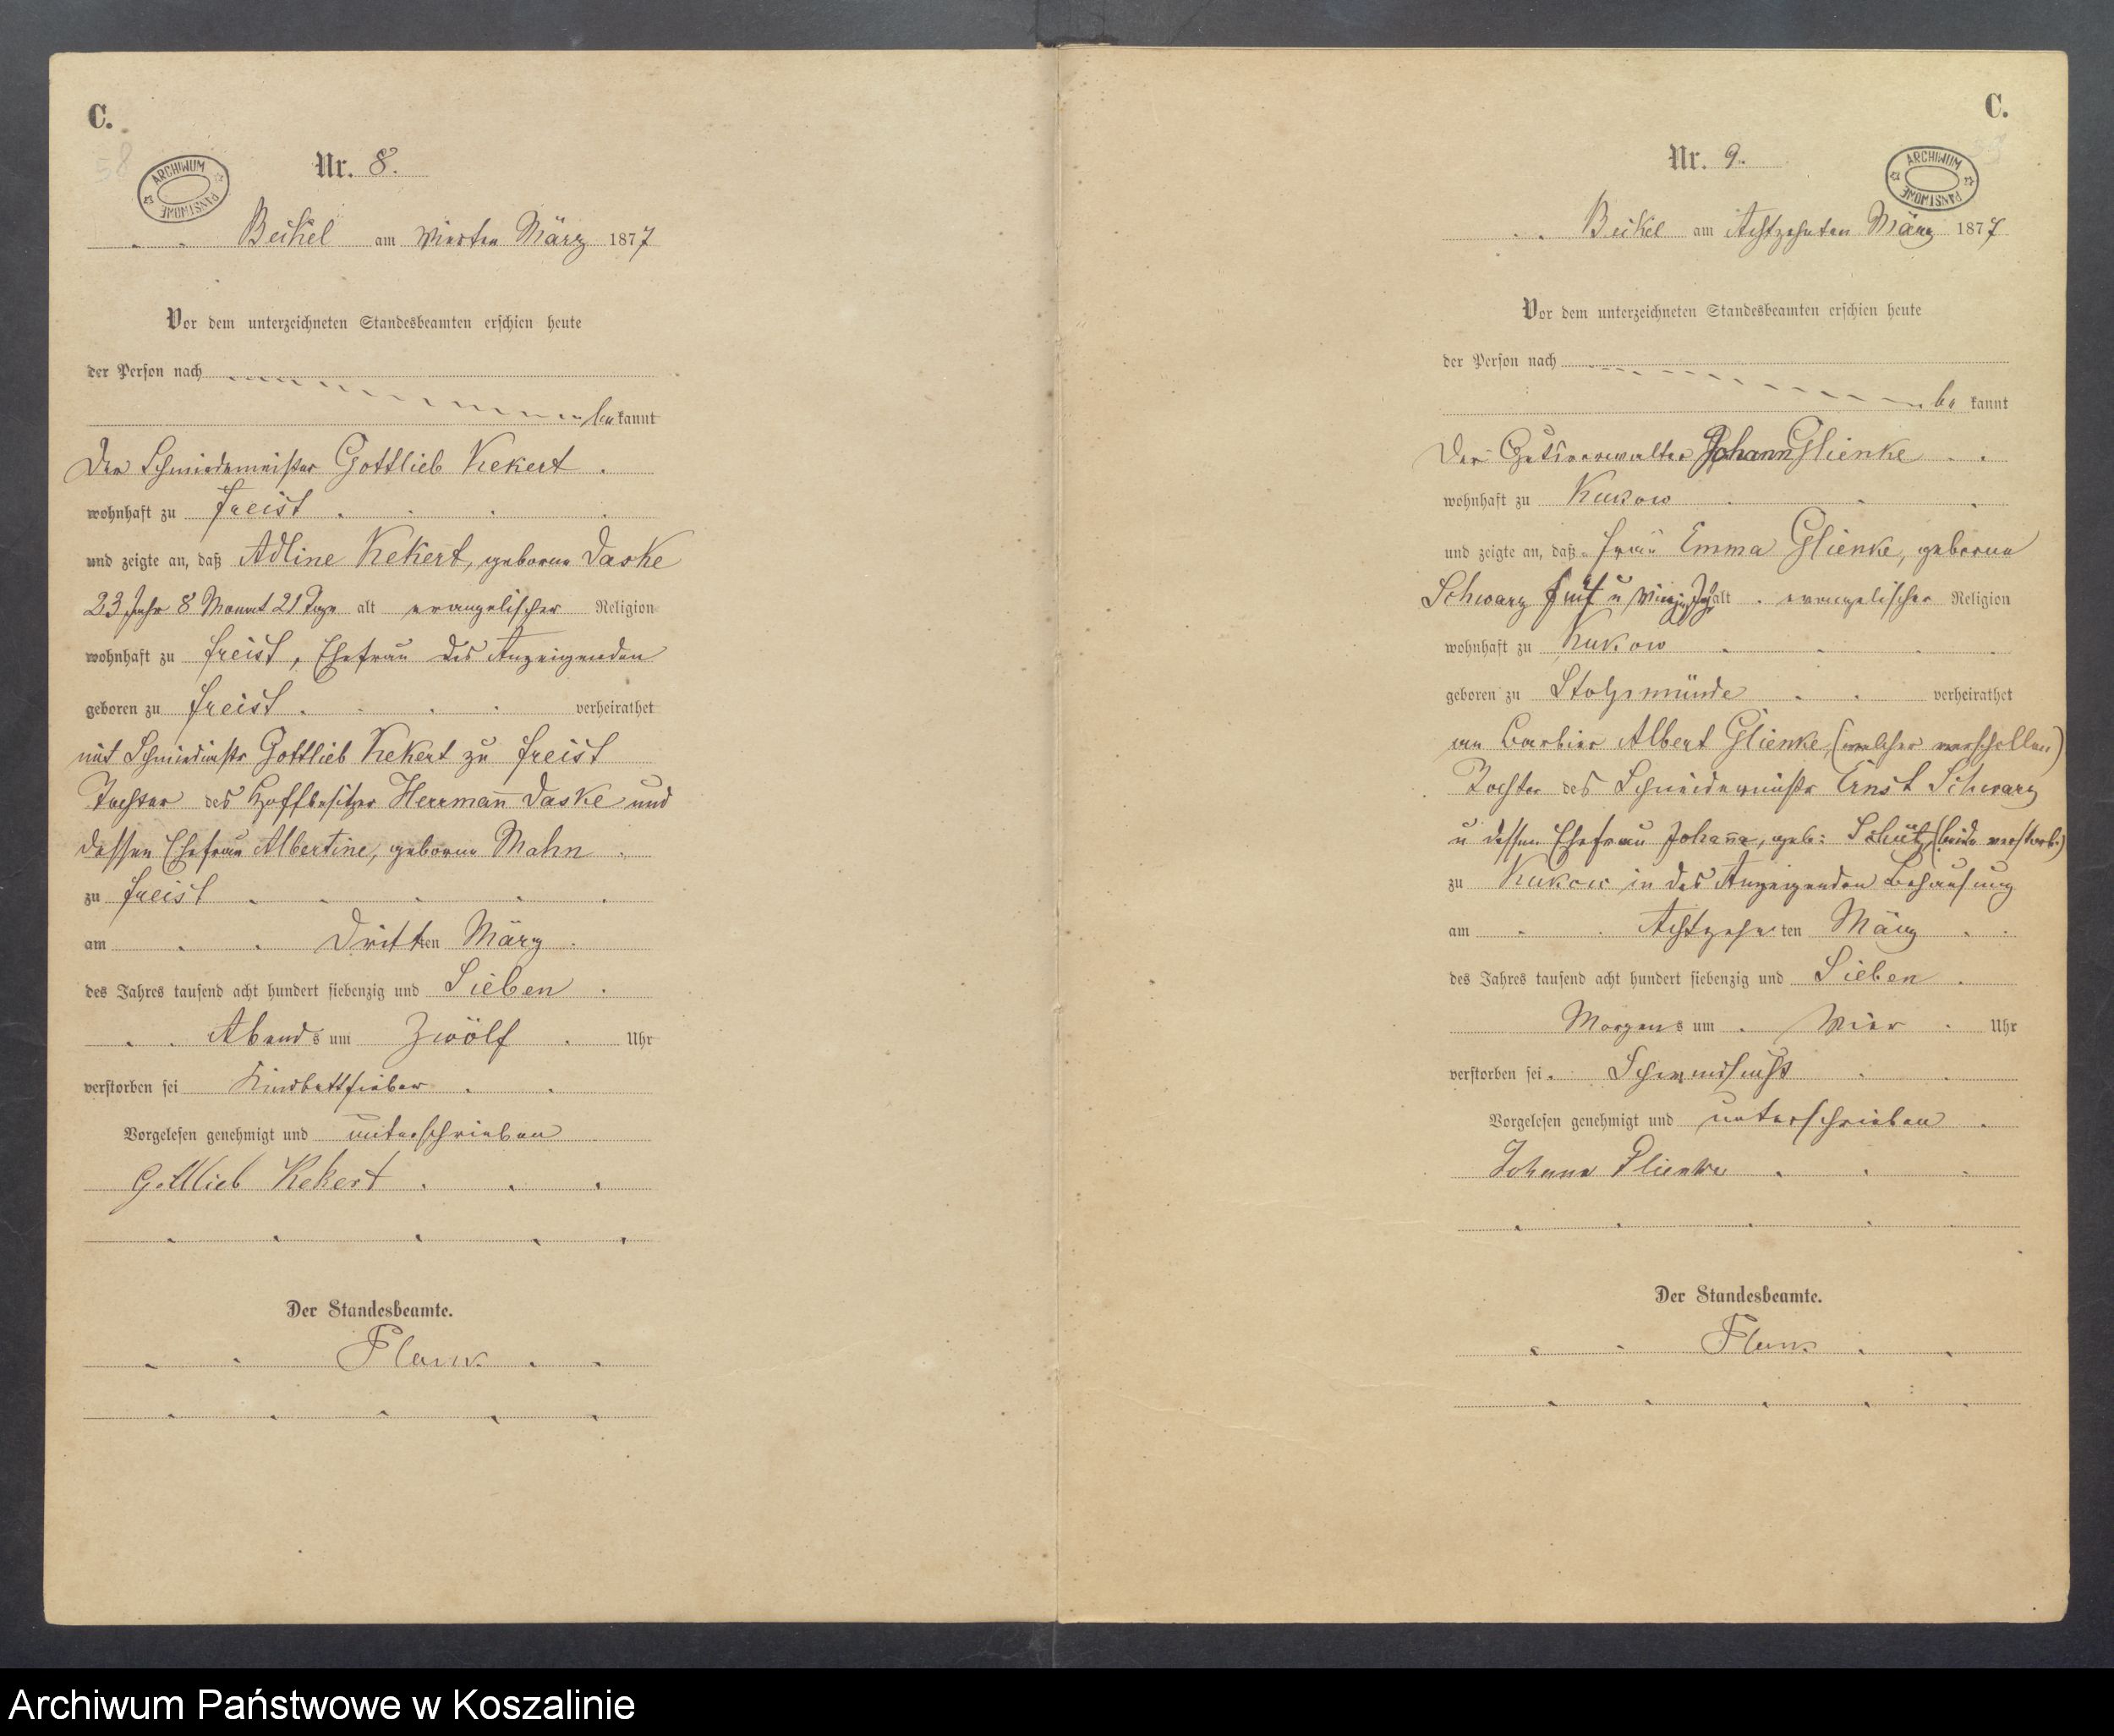 C.
58
ARCHIWUM PAŃSTWOWE
Nr. 8.
Beckel am Vierten März 1877
Vor dem unterzeichneten Standesbeamten erschien heute
der Person nach
bekannt
Der Schmiedemeister Gottlieb Kekert
wohnhaft zu Freist
und zeigte an, daß Adline Kekert, geborne Daske
23 Jahr 8 Monat 21 Tage alt evangelischer Religion
wohnhaft zu Freist, Ehefrau des Anzeigenden
geboren zu Freist verheirathet
mit Schmiedmstr Gottlieb Kekert zu Freist
Tochter des Hoffbesitzer Herrmann Daske und
dessen Ehefrau Albertine, geborne Mahn
zu Freist
am Dritten März
des Jahres tausend acht hundert siebenzig und Sieben
Abends um Zwölf Uhr
verstorben sei Kindbettfieber
Vorgelesen genehmigt und unterschrieben
Gottlieb Kekert
Der Standesbeamte.
C.
ARCHIWUM PAŃSTWOWE
Nr. 9.
Beckel am Achtzehnten März 1877
Vor dem unterzeichneten Standesbeamten erschien heute
der Person nach
be kannt
Der Gutsverwalter Johann Glienke
wohnhaft zu Kukow
und zeigte an, daß Frau Emma Glienke, geborne
Schwarz Fünf u Vierzig Jahr alt evangelischer Religion
wohnhaft zu Kukow
geboren zu Stolpmünde verheirathet
an Barbier Albert Glienke, (welcher verschollen)
Tochter des Schneidermstr Ernst Schwarz
u dessen Ehefrau Johanna, geb: Schütz (beide verstorb.)
zu Kukow in des Anzeigenden Behausung
am Achtzehnten März
des Jahres tausend acht hundert siebenzig und Sieben
Morgens um Vier Uhr
verstorben sei Schwindsucht
Vorgelesen genehmigt und unterschrieben
Johann Glienke
Der Standesbeamte.
Archiwum Państwowe w Koszalinie